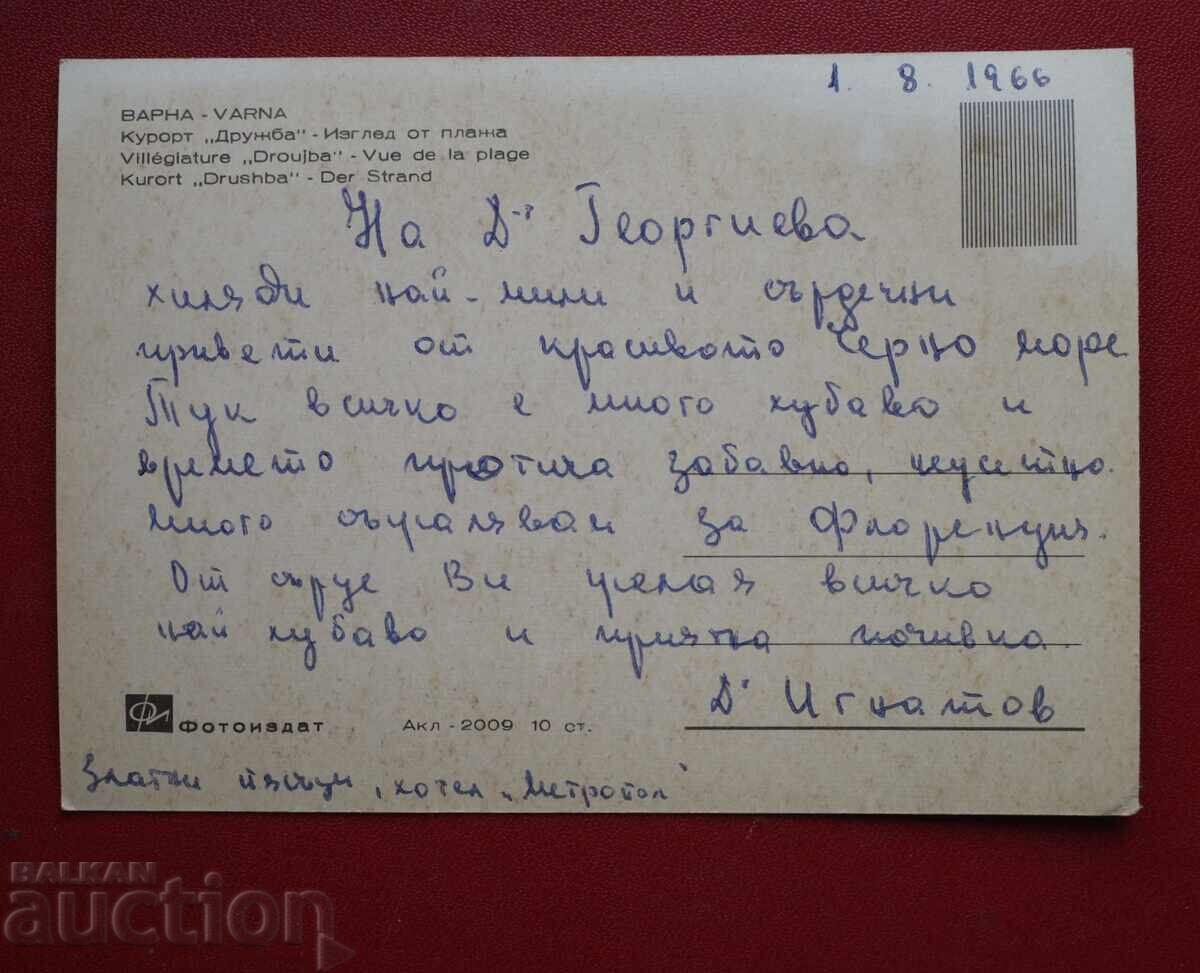 1. 8. 1966
ВАРНА - VARNA
Курорт „Дружба" - Изглед от плажа
Villégiature „Droujba" - Vue de la plage
Kurort „Drushba" - Der Strand
На Д-р Георгиева
хиляди най-мили и сърдечни
привети от красивото Черно море
Тук всичко е много хубаво и
времето протича забавно, неусетно.
много съжалявам за Флоренция.
От сърце Ви желая всичко
най хубаво и приятна почивка.
Д-р Игнатов
Фотоиздат Акл - 2009 10 ст.
Златни пясъци, хотел „Метропол"
BALKAN
auction